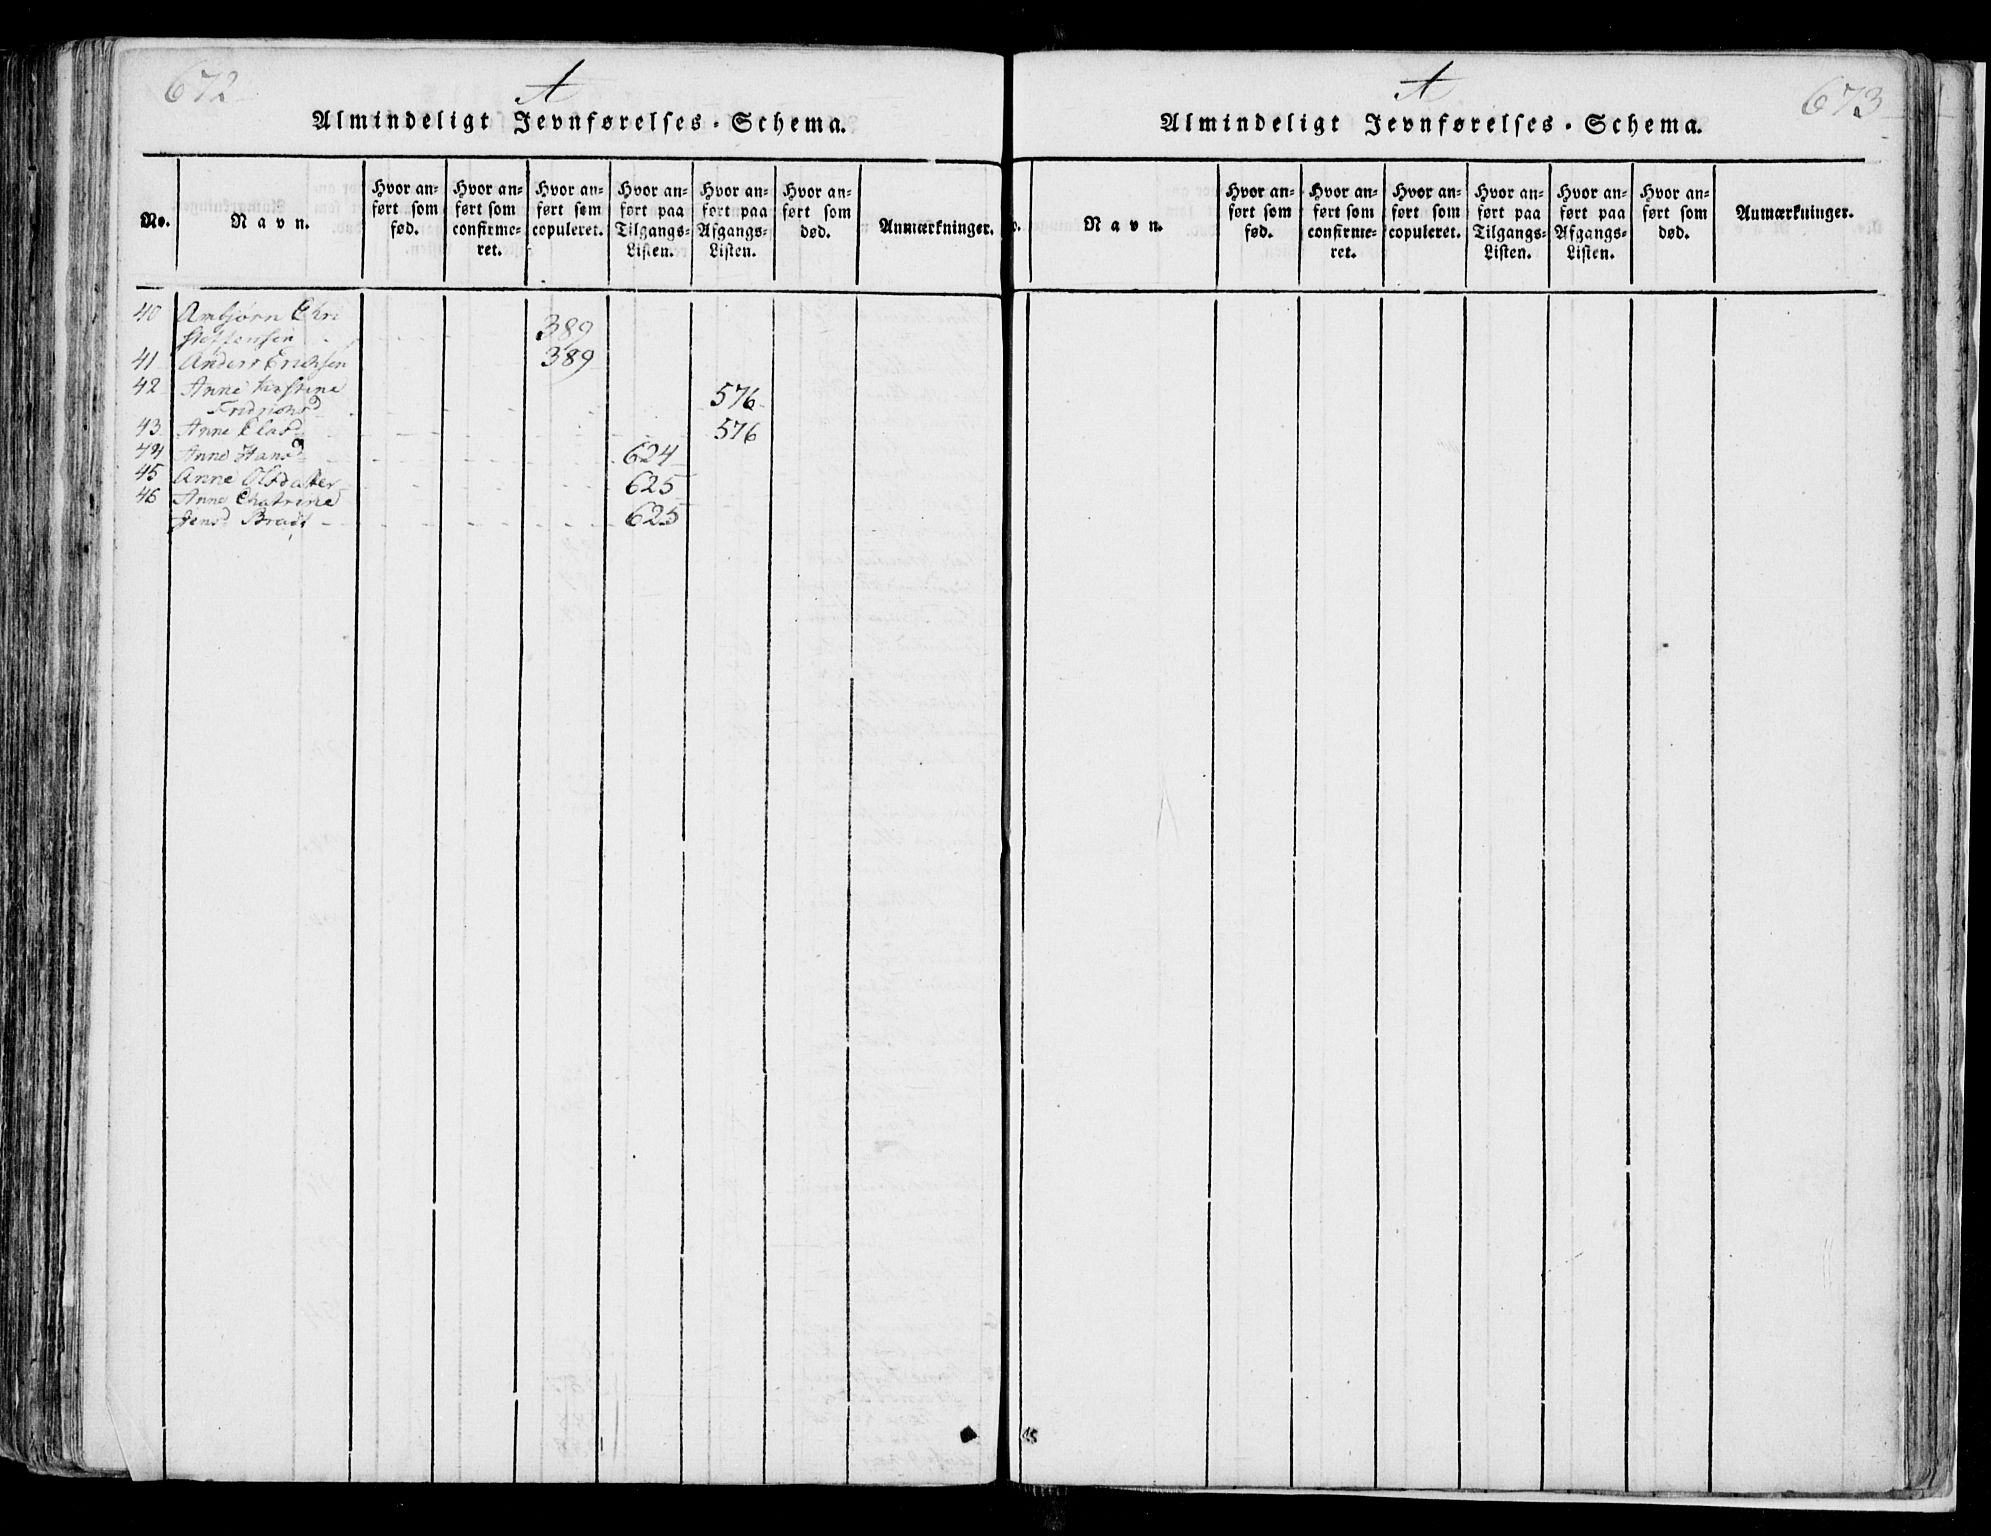 672
A
Almindeligt Jevnførelses-Schema.
No.
Navn.
Hvor an-
ført som
fød.
Hvor an-
ført som
confirme-
ret.
Hvor an-
ført som
copuleret.
Hvor an-
ført paa
Tilgangs-
Listen.
Hvor an-
ført paa
Afgangs-
Listen.
Hvor an-
ført som
død.
Anmærkninger.
40 Ambjørn Chri
stophersen 389
41 Anders Erichsen 389
42 Anne Kirstine 576
43 Anne 576
44 Anne Hansd 624
45 Anne Olsdatter 625
46 Anne Chatrine
Jensd 625
A
673
Almindeligt Jevnførelses-Schema.
o.
Navn.
Hvor an-
ført som
fød.
Hvor an-
ført som
confirme-
ret.
Hvor an-
ført som
copuleret.
Hvor an-
ført paa
Tilgangs-
Listen.
Hvor an-
ført paa
Afgangs-
Listen.
Hvor an-
ført som
død.
Anmærkninger.